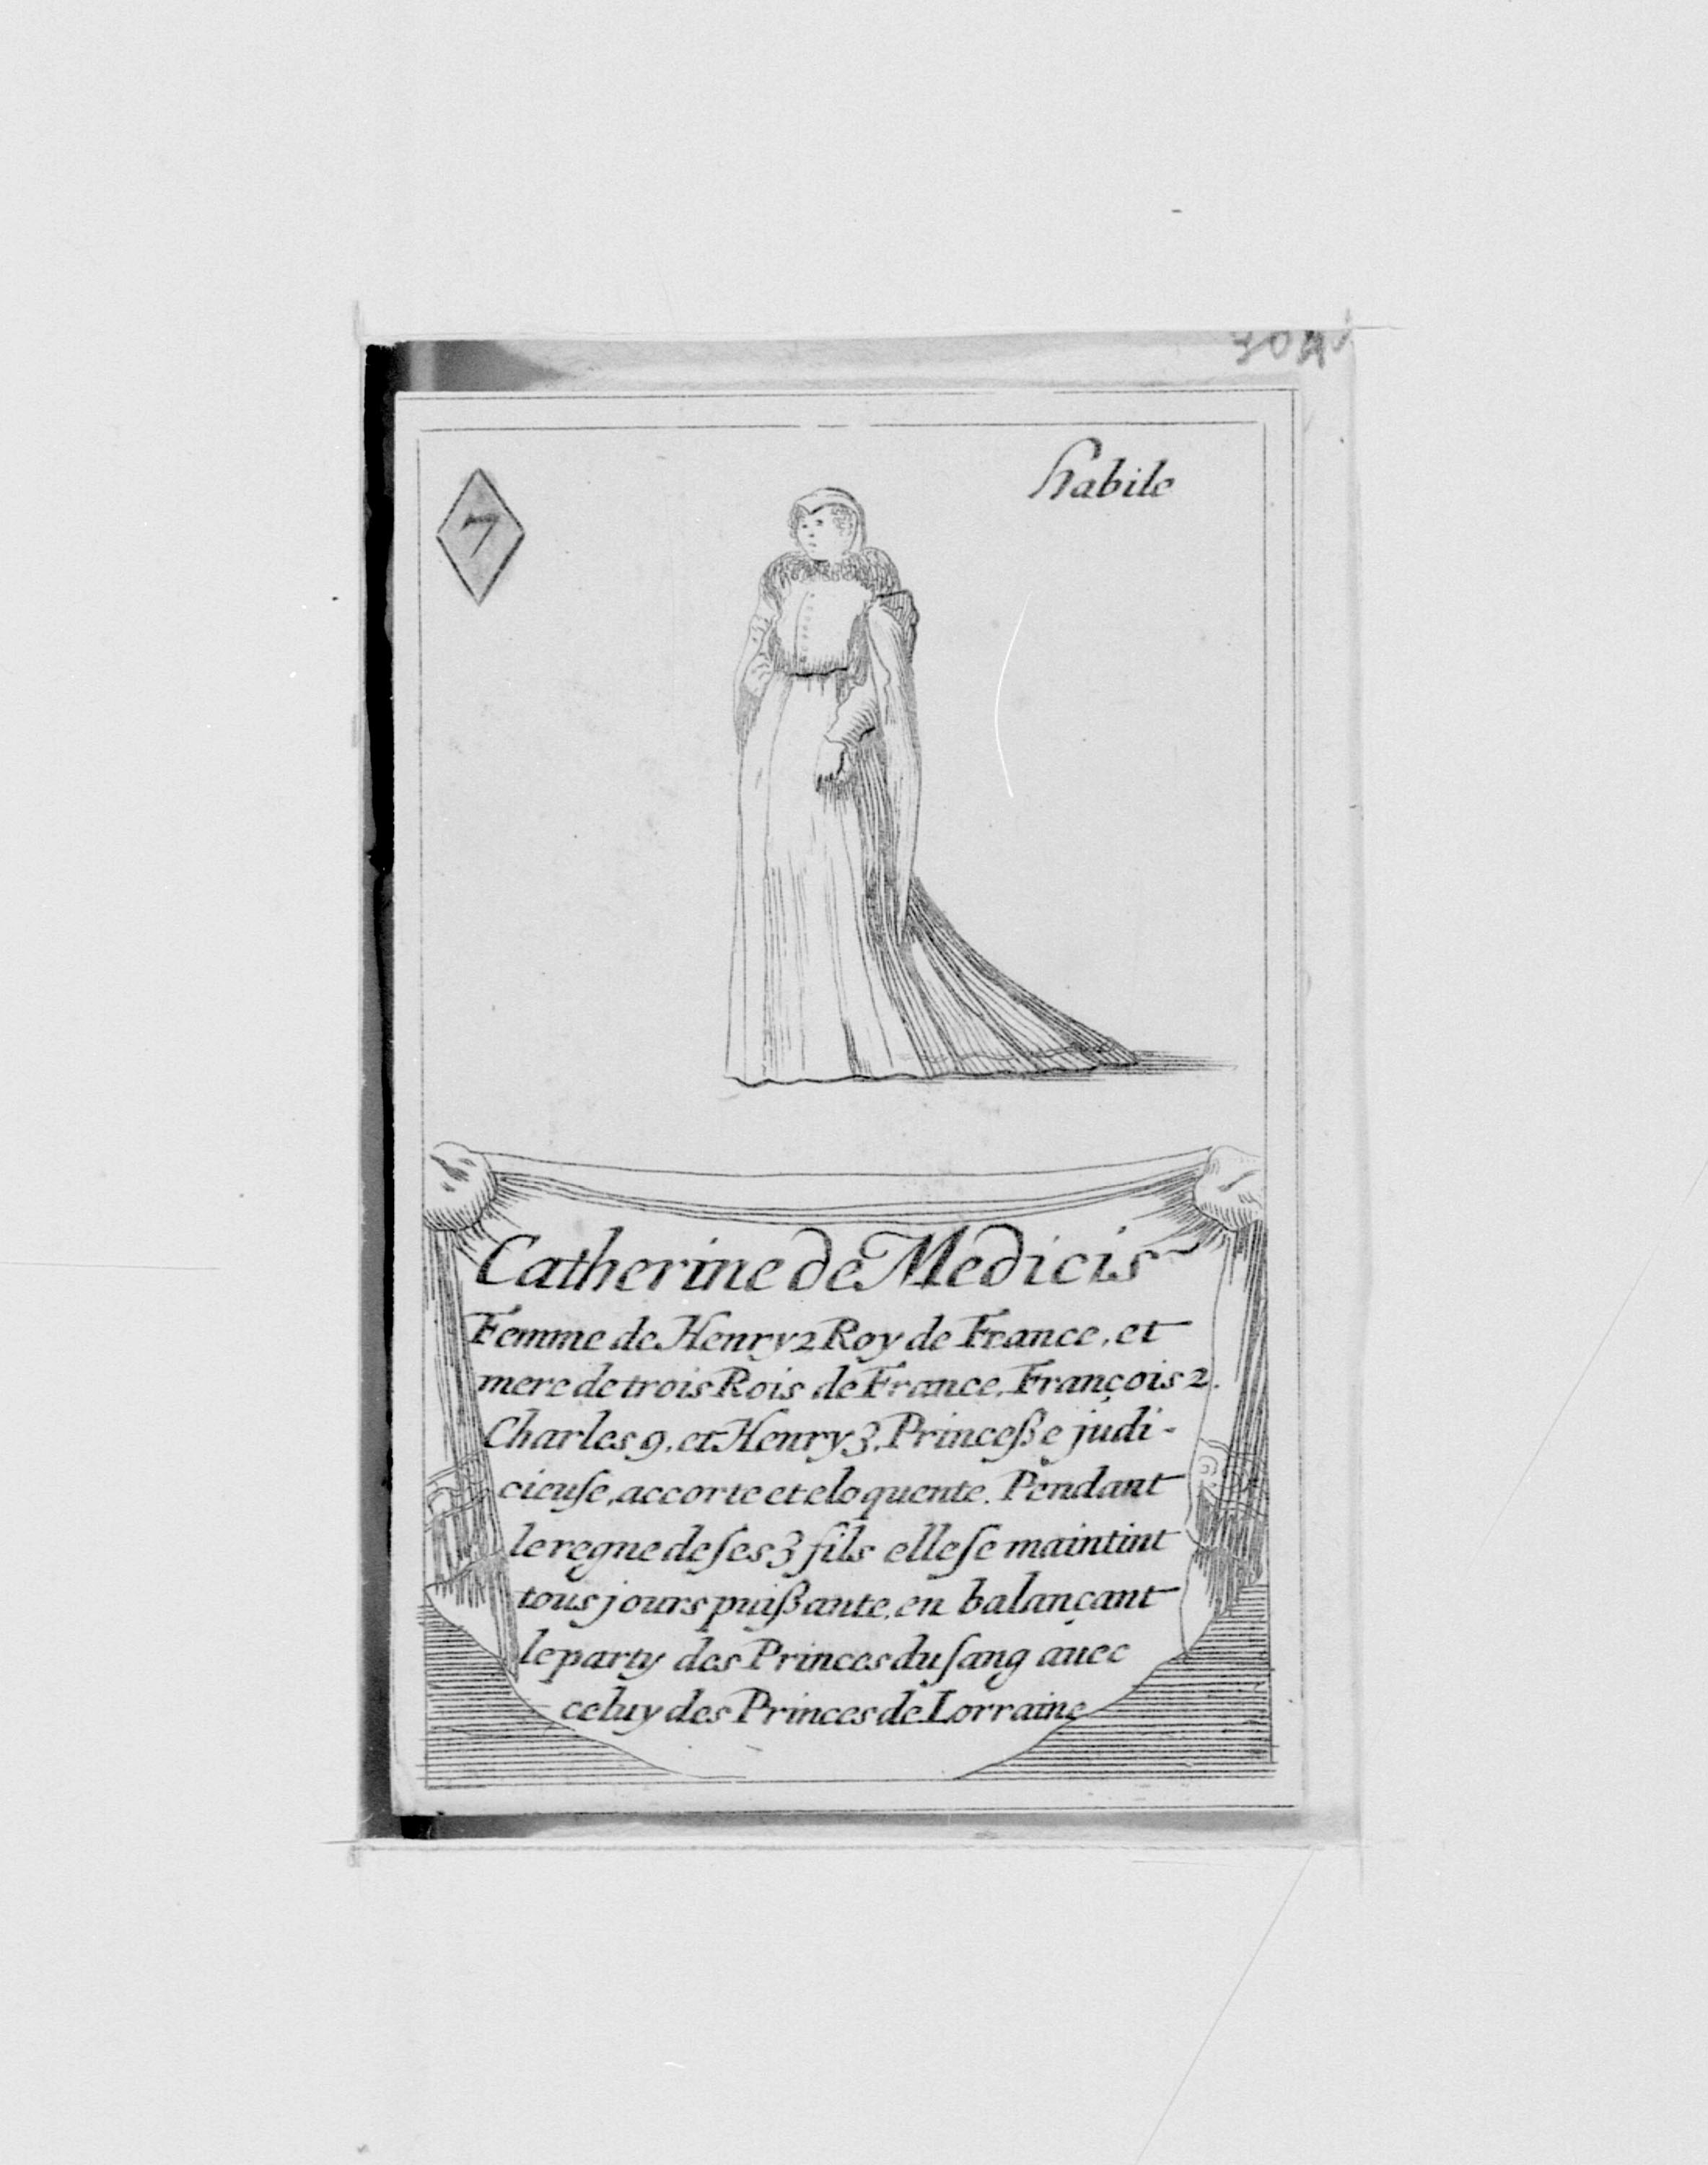 7
habile
Catherine de Medicis
Femme de Henry 2 Roy de France, et
mere de trois Rois de France, François 2.
Charles 9. et Henry 3. Princeße judi-
cieuſe, accorte et eloquente. Pendant
le regne de ſes 3 fils elle ſe maintint
tousjours puißante, en balançant
le party des Princes du ſang auec
celuy des Princes de Lorraine